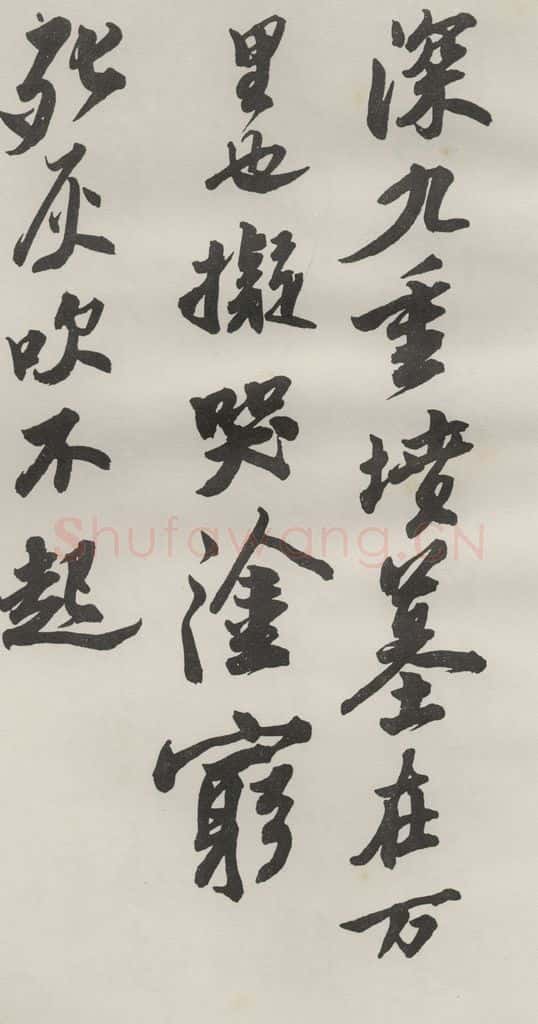 深九重墳墓在万
里也擬哭塗窮
死灰吹不起
Shufawang.CN